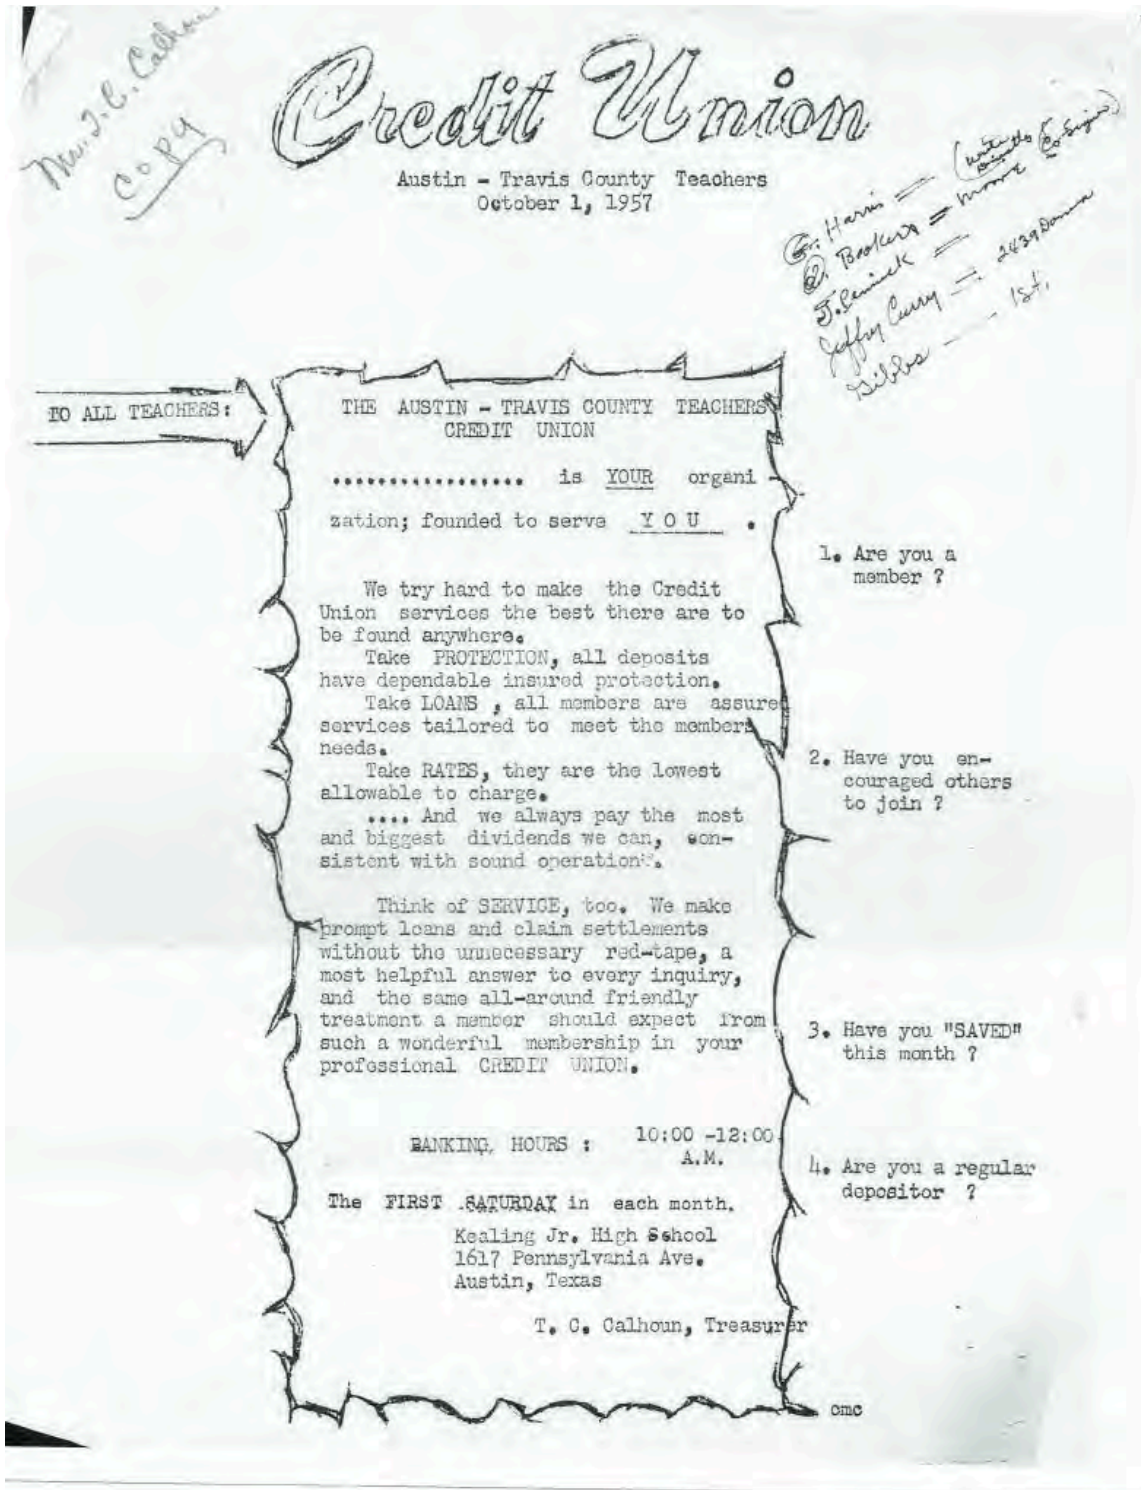 Mr. T. C. Calhoun
Copy
Credit Union
Austin - Travis County Teachers
October 1, 1957
G. Harris = (
Q. Bookers = Moore (Co-Signer)
J.
Jeffry Curry = 2439 Donna
Gibbs — 1st.
TO ALL TEACHERS:
THE AUSTIN - TRAVIS COUNTY TEACHERS
CREDIT UNION
................. is YOUR organi -
zation; founded to serve Y O U .
We try hard to make the Credit
Union services the best there are to
be found anywhere.
Take PROTECTION, all deposits
have dependable insured protection.
Take LOANS , all members are assured
services tailored to meet the members
needs.
Take RATES, they are the lowest
allowable to charge.
.... And we always pay the most
and biggest dividends we can, con-
sistent with sound operations.
Think of SERVICE, too. We make
prompt loans and claim settlements
without the unnecessary red-tape, a
most helpful answer to every inquiry,
and the same all-around friendly
treatment a member should expect from
such a wonderful membership in your
professional CREDIT UNION.
BANKING HOURS : 10:00 -12:00
A.M.
The FIRST SATURDAY in each month.
Kealing Jr. High School
1617 Pennsylvania Ave.
Austin, Texas
T. C. Calhoun, Treasurer
omc
1. Are you a
member ?
2. Have you en-
couraged others
to join ?
3. Have you "SAVED"
this month ?
4. Are you a regular
depositor ?